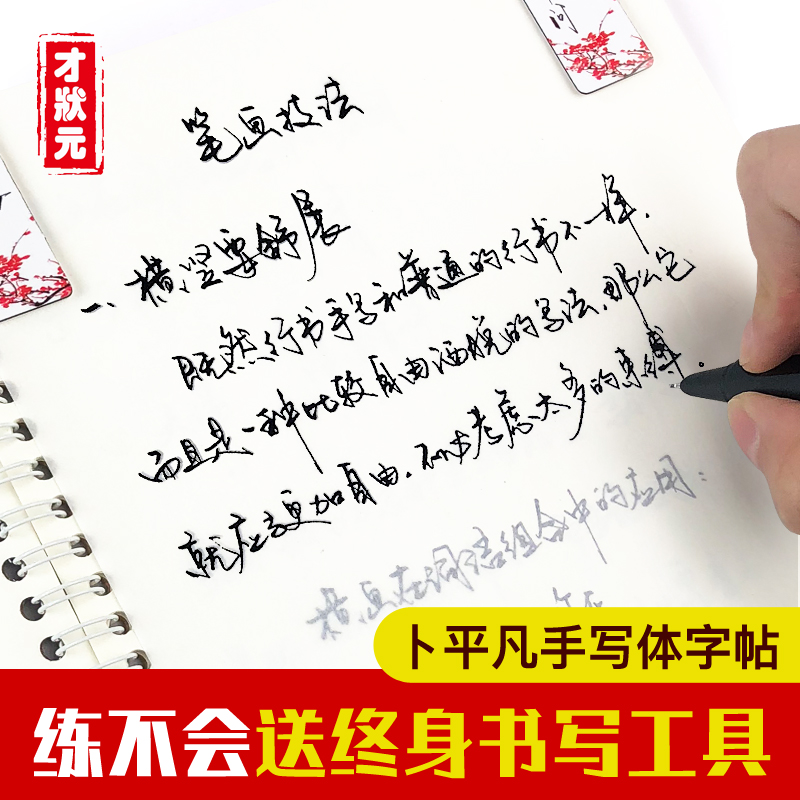 才狀元
问
笔画技法
一、横竖要舒展
既然行书手写和普通的行书不一样,
而且是一种比较自由洒脱的写法,那么它
就应该更加自由,不必考虑太多的束缚。
横画在词语组合中的应用:
卜平凡手写体字帖
练不会送终身书写工具